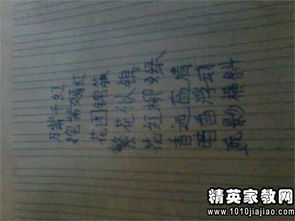 万紫千红
姹紫嫣红
花团锦簇
繁花似锦
花红柳绿
香远益清
暗香浮动
疏影横斜
精英家教网
www.1010jiajiao.com